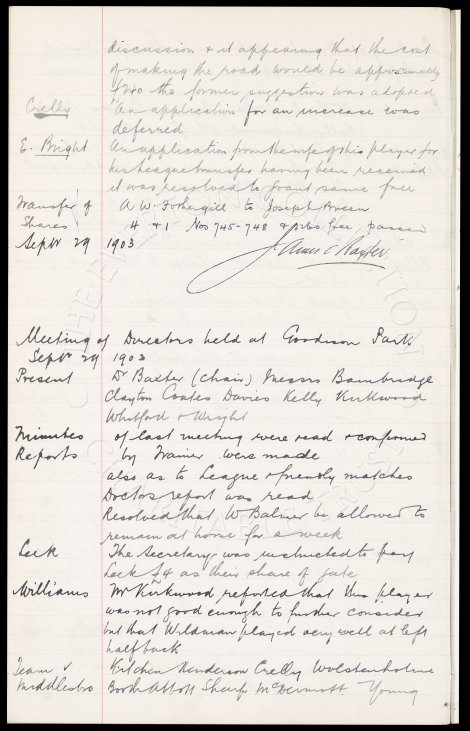 discussion & it appearing that the cost
of making the road would be approximately
£240 the former suggestion was adopted
Crelly An application for an increase was
deferred
E. Bright An application from the wife of this player for
his League transfer having been received
it was resolved to grant same free
Transfer of A. W. Fothergill to Joseph Breen
Shares 4 & 1 Nos 745-748 & 2160 free passed
Sept 29 1903
James C Baxter
Meeting of Directors held at Goodison Park
Sept 29 1903
Present Dr Baxter (chair) Messrs Bainbridge
Clayton Coates Davies Kelly Kirkwood
Whitford & Wright
Minutes of last meeting were read & confirmed
Reports by Trainer were made
also as to League & friendly matches
Doctors report was read
Resolved that W Balmer be allowed to
remain at home for a week
Leek The Secretary was instructed to pay
Leek £4 as their share of gate
Williams Mr Kirkwood reported that this player
was not good enough to further consider
but that Wildman played very well at left
half back
Team v Kitchen Henderson Crelly Wolstenholme
Middlesbro Booth Abbott Sharp McDermott Young